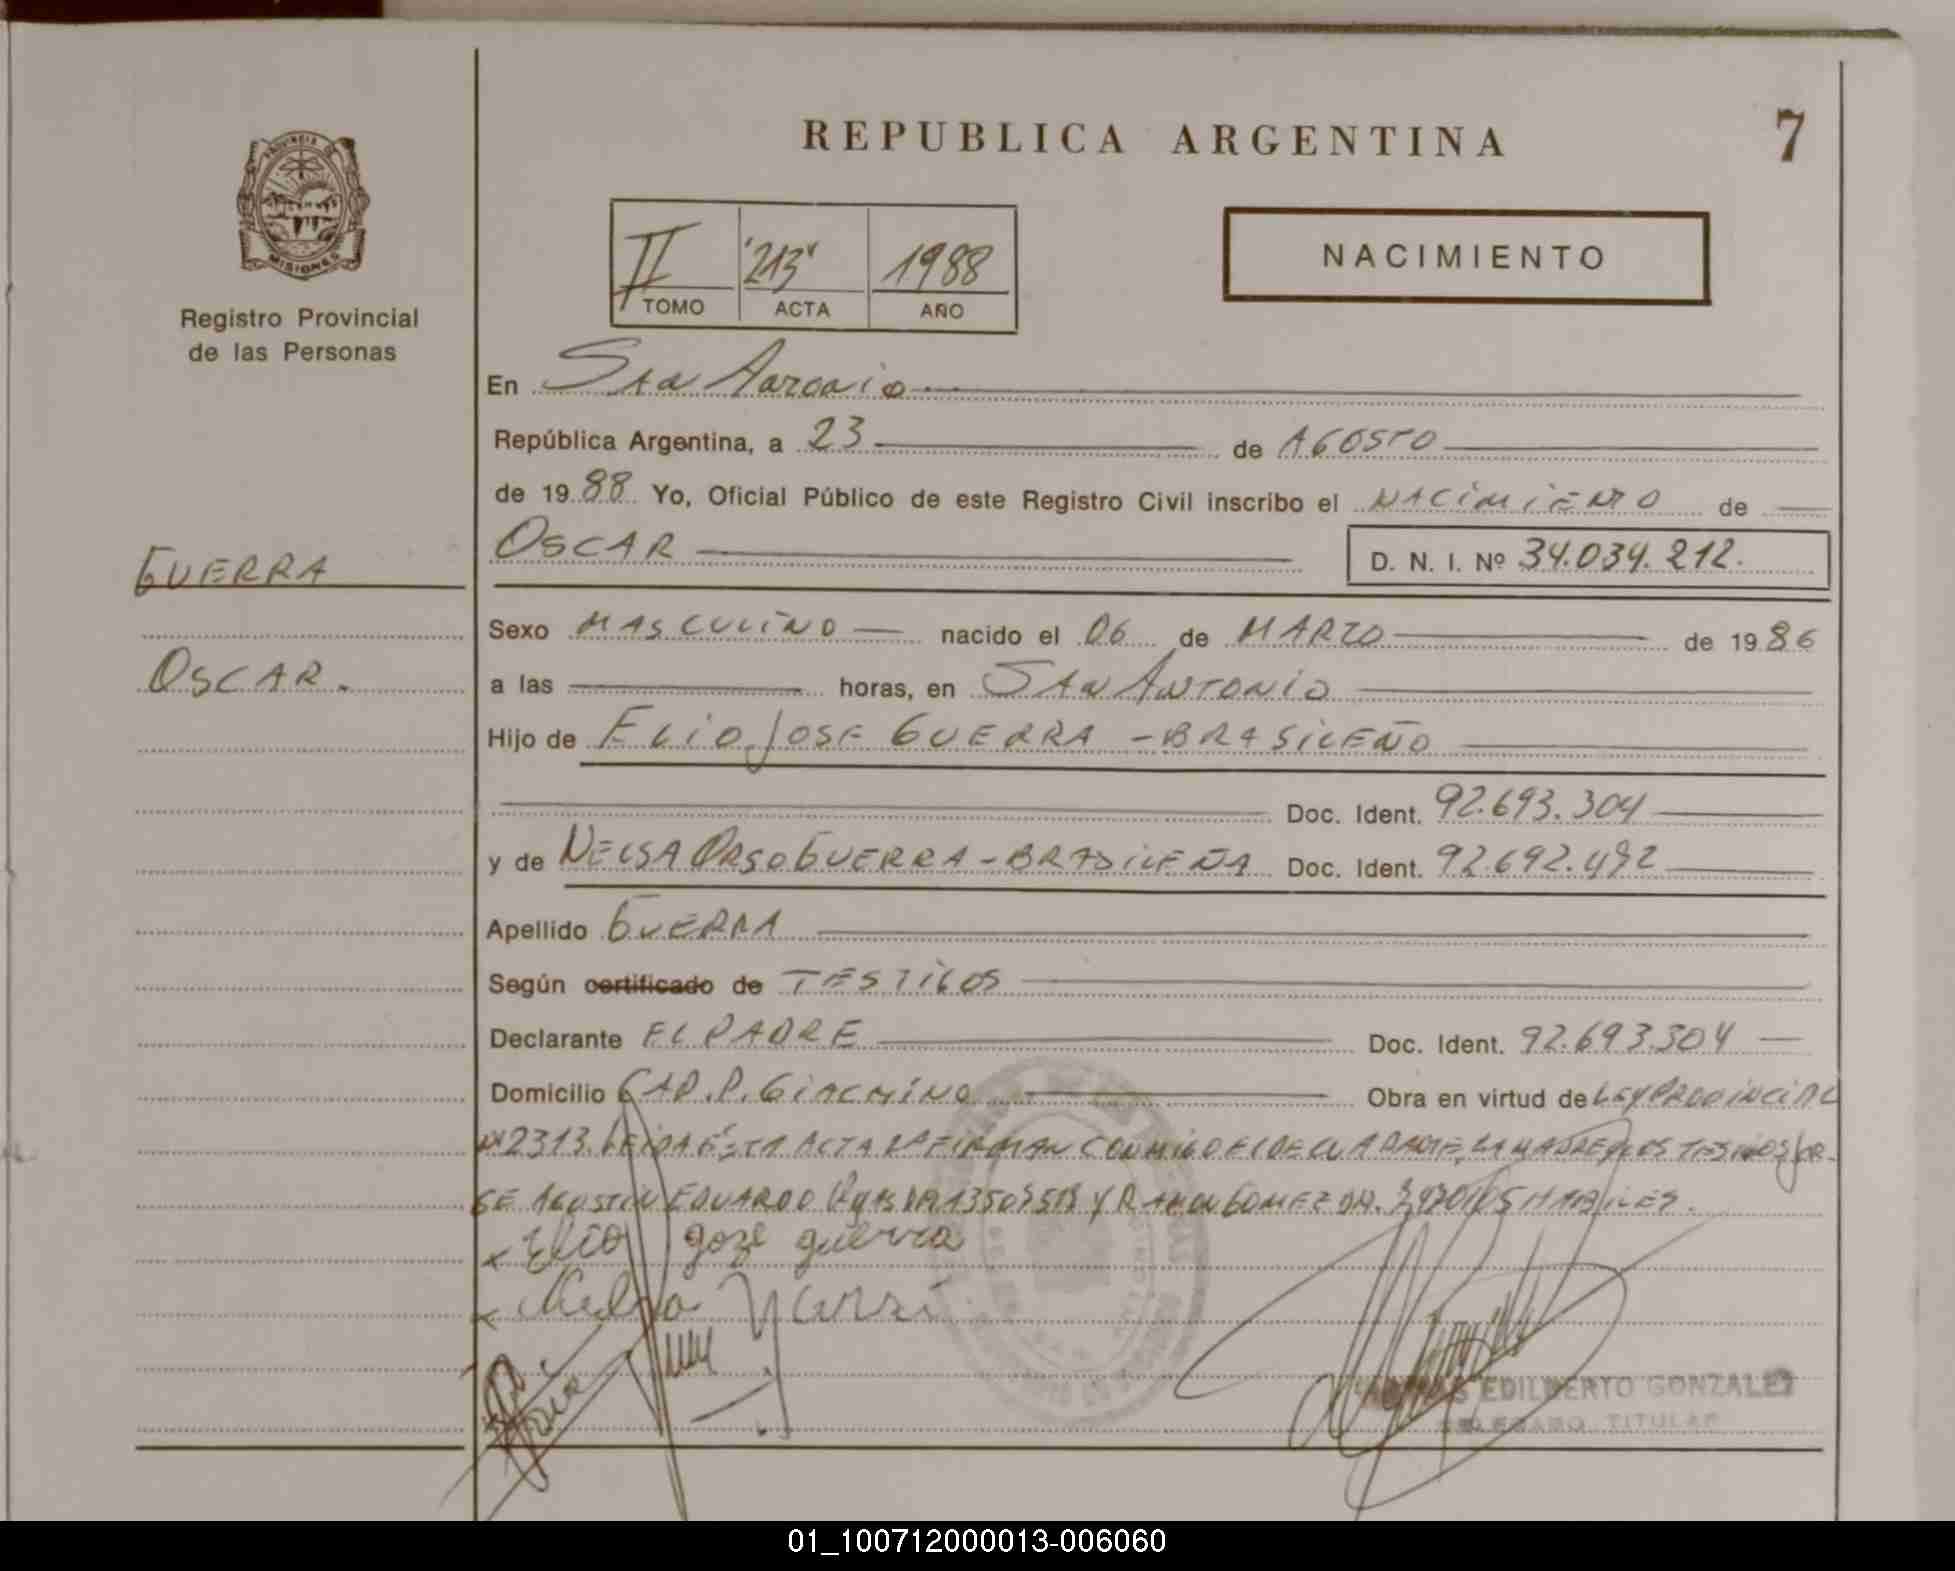 REPUBLICA ARGENTINA
7
PROVINCIA DE
MISIONES
Registro Provincial
de las Personas
II '213' 1988
TOMO ACTA AÑO
NACIMIENTO
En San Antonio
República Argentina, a 23 de AGOSTO
de 1988 Yo, Oficial Público de este Registro Civil inscribo el NACIMIENTO de
OSCAR
D. N. I. Nº 34.034.212.
GUERRA
OSCAR.
Sexo MASCULINO nacido el 06 de MARZO de 1986
a las horas, en SAN ANTONIO
Hijo de ELIO JOSE GUERRA - BRASILEÑO
Doc. Ident. 92.693.304
y de NELSA ORSO GUERRA - BRASILEÑA Doc. Ident. 92.692.492
Apellido GUERRA
Según certificado de TESTIGOS
Declarante EL PADRE Doc. Ident. 92.693.304
Domicilio CAP. P. GIACHINO Obra en virtud de LEY PROVINCIAL
Nº 2313. LEIDA ESTA ACTA LA FIRMAN CONMIGO EL DECLARANTE, LA MADRE Y LOS TESTIGOS JOR-
GE AGUSTIN EDUARDO Y RAMON GOMEZ HABILES.
x Elio goze guerra
x Nelsa
EDILBERTO GONZALEZ
DELEGADO TITULAR
01_100712000013-006060